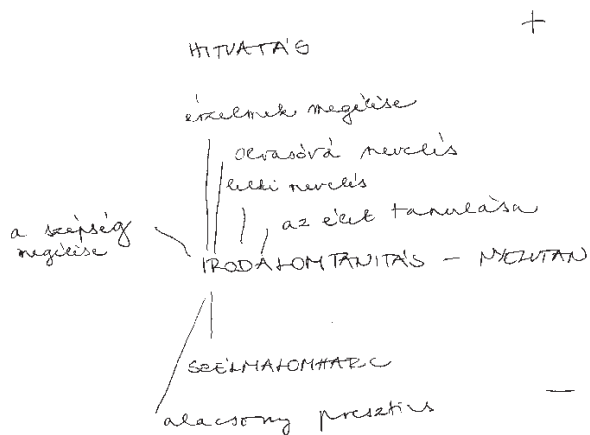 +
HITVATÁS
érzelmek megélése
olvasóvá nevelés
lelki nevelés
az élet tanulása
a szépség
megélése
IRODALOMTANITÁS – NYELVTAN
SZÉLMALOMHARC
—
alacsony presztizs